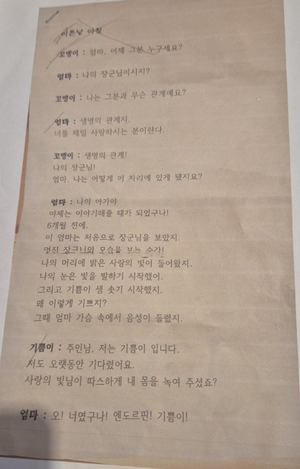 이튿날 아침
꼬맹이 : 엄마, 어제 그분 누구세요?
엄마 : 나의 장군님이시지?
꼬맹이 : 나는 그분과 무슨 관계예요?
엄마 : 생명의 관계지.
너를 제일 사랑하시는 분이란다.
꼬맹이 : 생명의 관계!
나의 장군님!
엄마, 나는 어떻게 이 자리에 있게 됐지요?
엄마 : 나의 아가야
이제는 이야기해줄 때가 되었구나!
6개월 전에,
이 엄마는 처음으로 장군님을 보았지.
멋진 장군님의 모습을 보는 순간!
나의 머리에 맑은 사랑의 빛이 들어왔지.
나의 눈은 빛을 발하기 시작했어.
그리고 기쁨이 샘 솟기 시작했지.
왜 이렇게 기쁘지?
그때 엄마 가슴 속에서 음성이 들렸지.
기쁨이 : 주인님, 저는 기쁨이 입니다.
저도 오랫동안 기다렸어요.
사랑의 빛님이 따스하게 내 몸을 녹여 주셨죠?
엄마 : 오! 너였구나! 엔도르핀! 기쁨이!